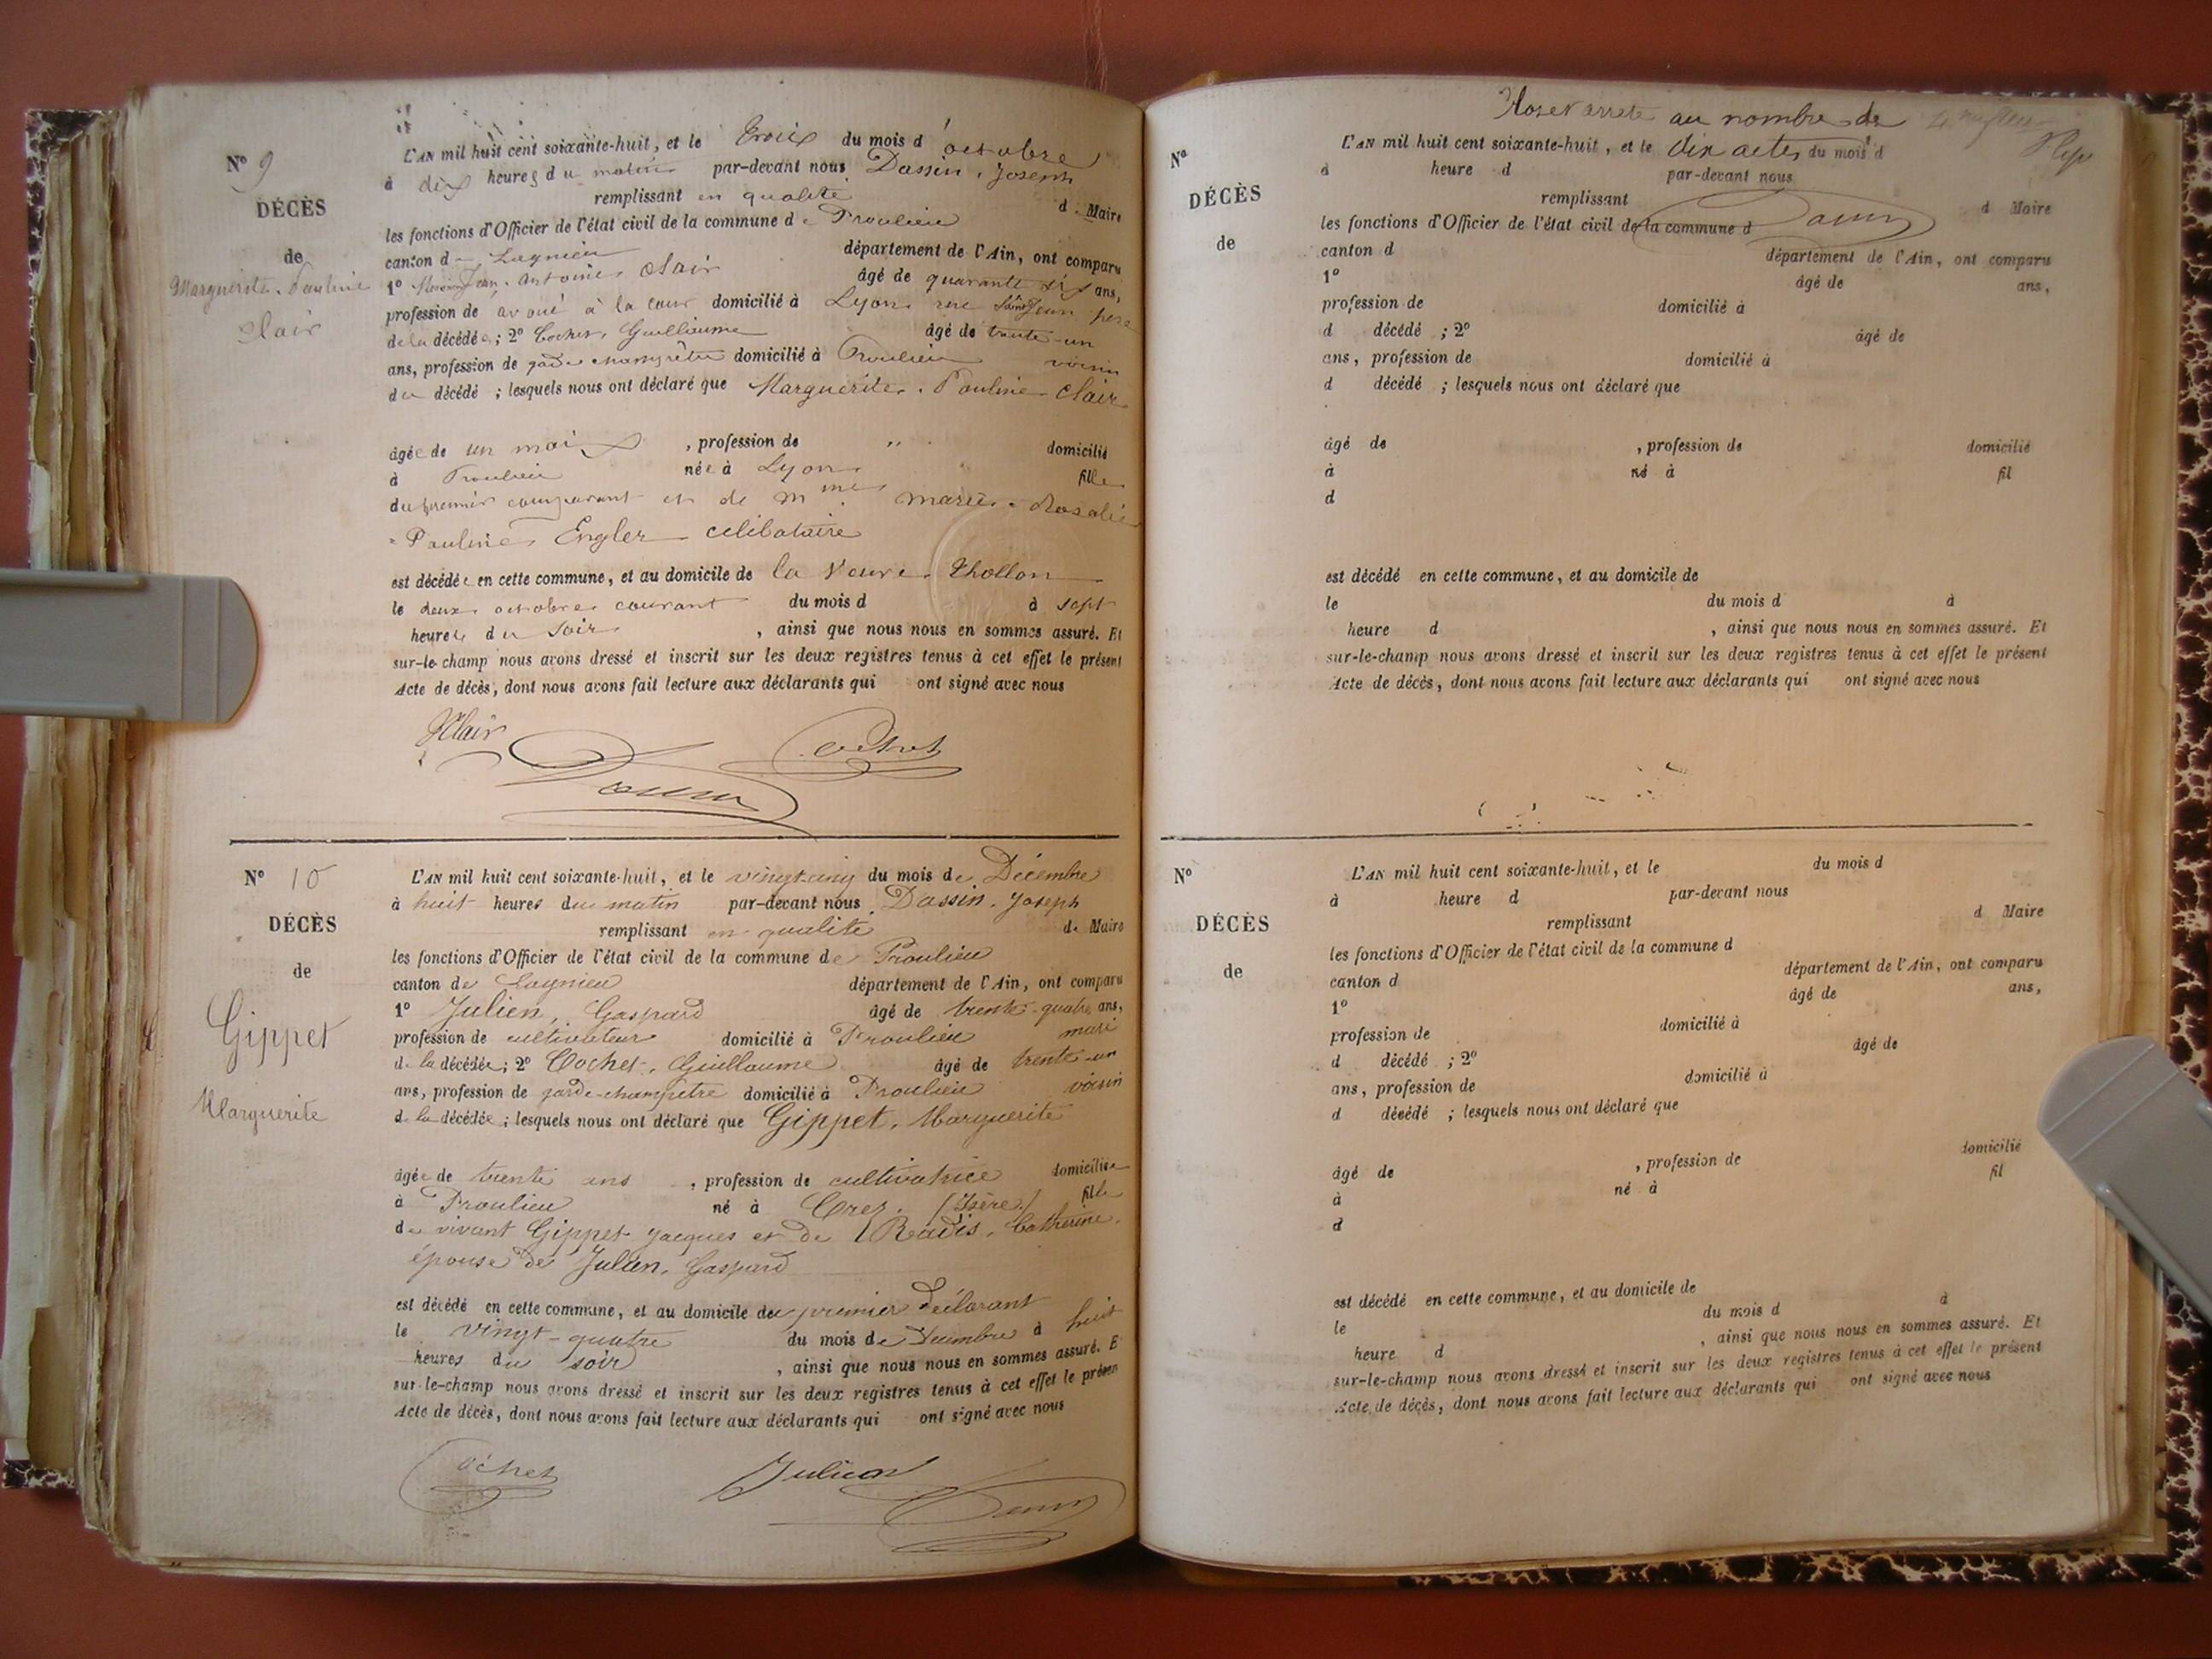 N° 9
DÉCÈS
de
Marguerite Pauline
Clair
L'AN mil huit cent soixante-huit, et le trois du mois d'octobre
à dix heures du matin par-devant nous Dassin, Joseph
remplissant en qualité de Maire
les fonctions d'Officier de l'état civil de la commune de Proulieu
canton de Lagnieu département de l'Ain, ont comparu
1° Jean Antoine Clair âgé de quarante six ans,
profession de avoué à la cour domicilié à Lyon rue Saint Jean père
de la décédée; 2° Cochet, Guillaume âgé de trente-un
ans, profession de garde champêtre domicilié à Proulieu voisin
du décédé ; lesquels nous ont déclaré que Marguerite Pauline Clair
âgée de un mois , profession de " domicilié
à Proulieu née à Lyon fille
du premier comparant et de Mme Marie Rosalie
Pauline Engler célibataire
est décédée en cette commune, et au domicile de la Veuve Thollon
le deux octobre courant du mois d à sept
heures du soir , ainsi que nous nous en sommes assuré. Et
sur-le-champ nous avons dressé et inscrit sur les deux registres tenus à cet effet le présent
Acte de décès, dont nous avons fait lecture aux déclarants qui ont signé avec nous
Clair
Cochet
Dassin
N° 10
DÉCÈS
de
Gippet
Marguerite
L'AN mil huit cent soixante-huit, et le vingt cinq du mois de Décembre
à huit heures du matin par-devant nous Dassin, Joseph
remplissant en qualité de Maire
les fonctions d'Officier de l'état civil de la commune de Proulieu
canton de Lagnieu département de l'Ain, ont comparu
1° Julien, Gaspard âgé de trente-quatre ans,
profession de cultivateur domicilié à Proulieu mari
de la décédée; 2° Cochet, Guillaume âgé de trente-un
ans, profession de garde-champêtre domicilié à Proulieu voisin
de la décédée; lesquels nous ont déclaré que Gippet, Marguerite
âgée de trente ans , profession de cultivatrice domiciliée
à Proulieu né à (Isère) fille
de vivant Gippet Jacques et de Radis, Catherine,
épouse de Julien, Gaspard
est décédé en cette commune, et au domicile du premier déclarant
le vingt-quatre du mois de Décembre à huit
heures du soir , ainsi que nous nous en sommes assuré. E
sur-le-champ nous avons dressé et inscrit sur les deux registres tenus à cet effet le présen
Acte de décès, dont nous avons fait lecture aux déclarants qui ont signé avec nous
Cochet
Julien
Dassin
Clos et arrêté au nombre de
N°
DÉCÈS
de
L'AN mil huit cent soixante-huit, et le dix actes du mois d
à heure d par-devant nous
remplissant d Maire
Dassin
les fonctions d'Officier de l'état civil de la commune d
canton d département de l'Ain, ont comparu
1° âgé de ans,
profession de domicilié à
d décédé ; 2° âgé de
ans, profession de domicilié à
d décédé ; lesquels nous ont déclaré que
âgé de , profession de domicilié
à né à fil
d
est décédé en cette commune, et au domicile de
le du mois d à
heure d , ainsi que nous nous en sommes assuré. Et
sur-le-champ nous avons dressé et inscrit sur les deux registres tenus à cet effet le présent
Acte de décès, dont nous avons fait lecture aux déclarants qui ont signé avec nous
N°
DÉCÈS
de
L'AN mil huit cent soixante-huit, et le du mois d
à heure d par-devant nous
remplissant d Maire
les fonctions d'Officier de l'état civil de la commune d
canton d département de l'Ain, ont comparu
1° âgé de ans,
profession de domicilié à
d décédé ; 2° âgé de
ans, profession de domicilié à
d décédé ; lesquels nous ont déclaré que
âgé de , profession de domicilié
à né à fil
d
est décédé en cette commune, et au domicile de
le du mois d à
heure d , ainsi que nous nous en sommes assuré. Et
sur-le-champ nous avons dressé et inscrit sur les deux registres tenus à cet effet le présent
Acte de décès, dont nous avons fait lecture aux déclarants qui ont signé avec nous